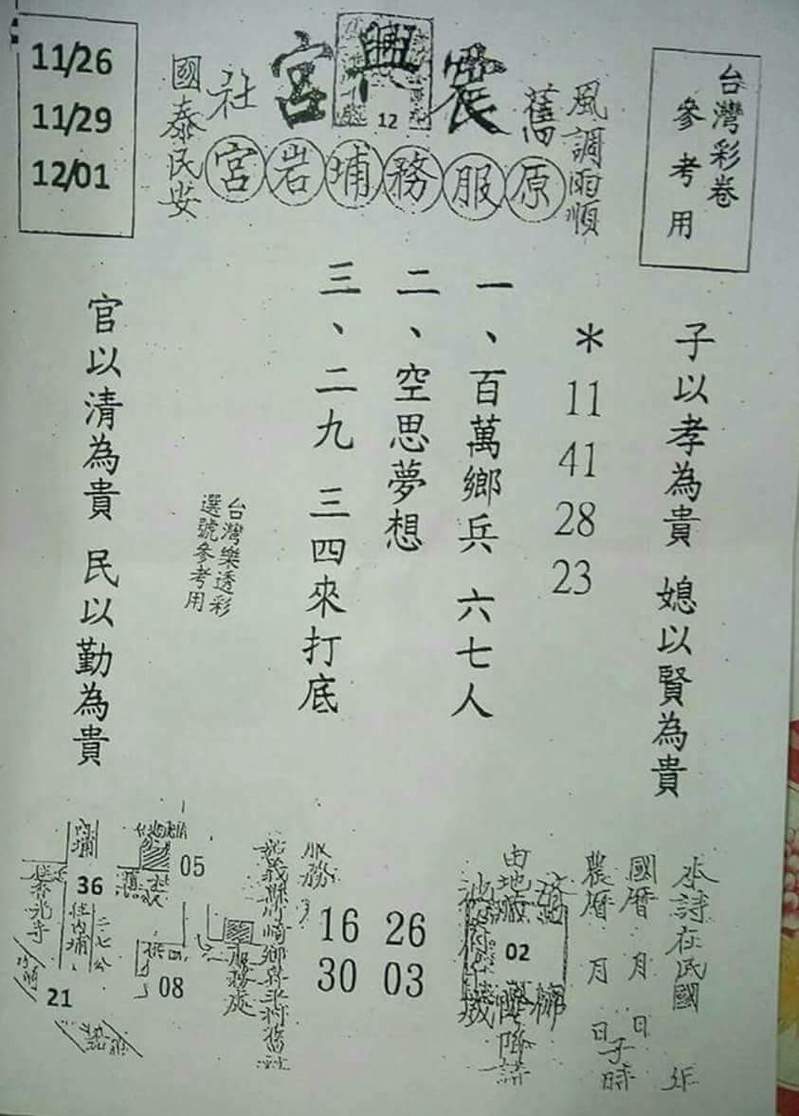 台灣彩卷
參考用
風調雨順
舊
震興宮
12
社
國泰民安
原服務埔岩宮
11/26
11/29
12/01
子以孝為貴 媳以賢為貴
* 11 41 28 23
一、百萬鄉兵 六七人
二、空思夢想
三、二九 三四來打底
台灣樂透彩
選號參考用
官以清為貴 民以勤為貴
本詩在民國 年
國曆 月 日
農曆 月 日子時
02
26
03
服務
16
30
服務處
05
08
內埔
36
住內埔
二七公
21